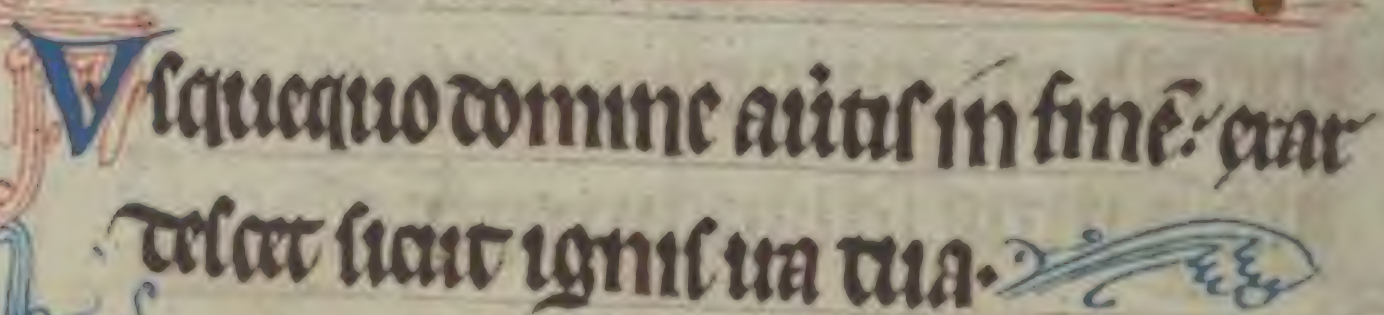 Vsquequo domine au̾tis in finē: exar
descet sicut ignis ira tua.